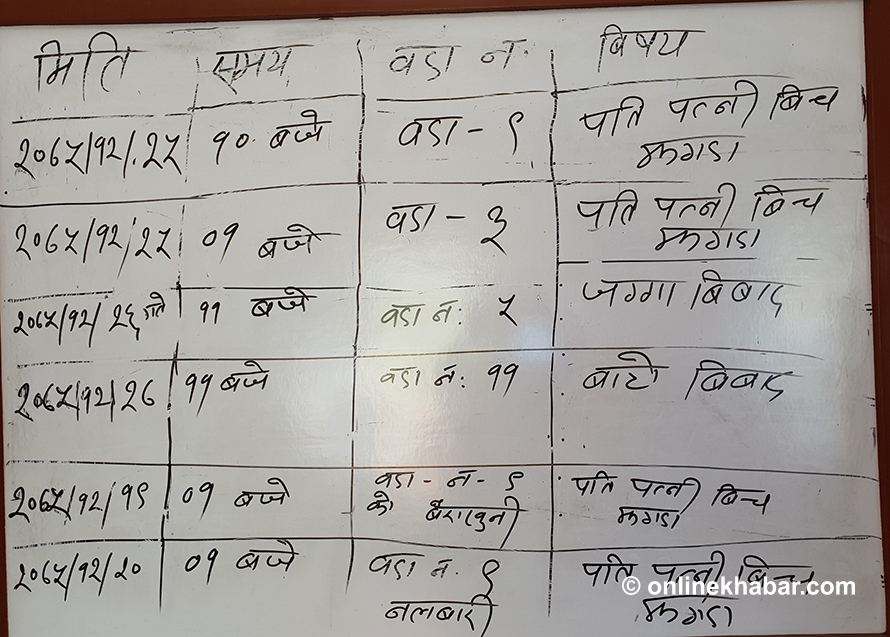 मिति समय वडा न. बिषय
२०७५/१२/.२५ १०. बजे वडा - ९ पति पत्नी बिच
झगडा
२०७५/१२/२५ ०१ बजे वडा - ३ पति पत्नी बिच
झगडा
२०७५/१२/२६ गते ११ बजे वडा न: ५ जग्गा बिबाद
२०७५/१२/२७ ११ बजे वडा न: ११ बाटो बिबाद
२०७५/१२/१९ ०१ बजे वडा - न - ९ पति पत्नी बिच
को झगडा
२०७५/१२/२० ०१ बजे वडा न. ९ पति पत्नी बिच
नलबारी झगडा
© onlinekhabar.com